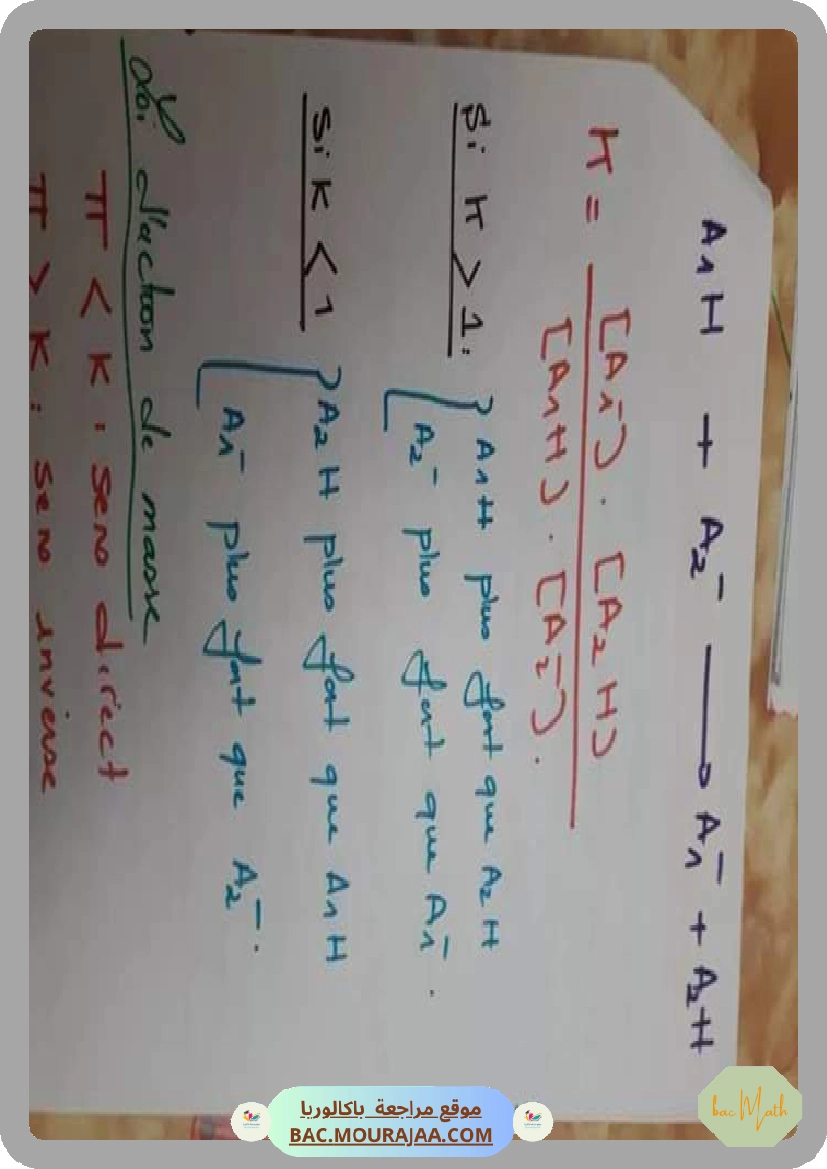 A₁H + A₂⁻ ⟶ A₁⁻ + A₂H
K = [A₁⁻] . [A₂H] / [A₁H] . [A₂⁻] .
Si K > 1 :
A₁H plus fort que A₂H
A₂⁻ plus fort que A₁⁻ .
Si K < 1
A₂H plus fort que A₁H
A₁⁻ plus fort que A₂⁻ .
Loi d'action de masse
π < K : sens direct
π > K : sens inverse
bac Math
موقع مراجعة باكالوريا
BAC.MOURAJAA.COM